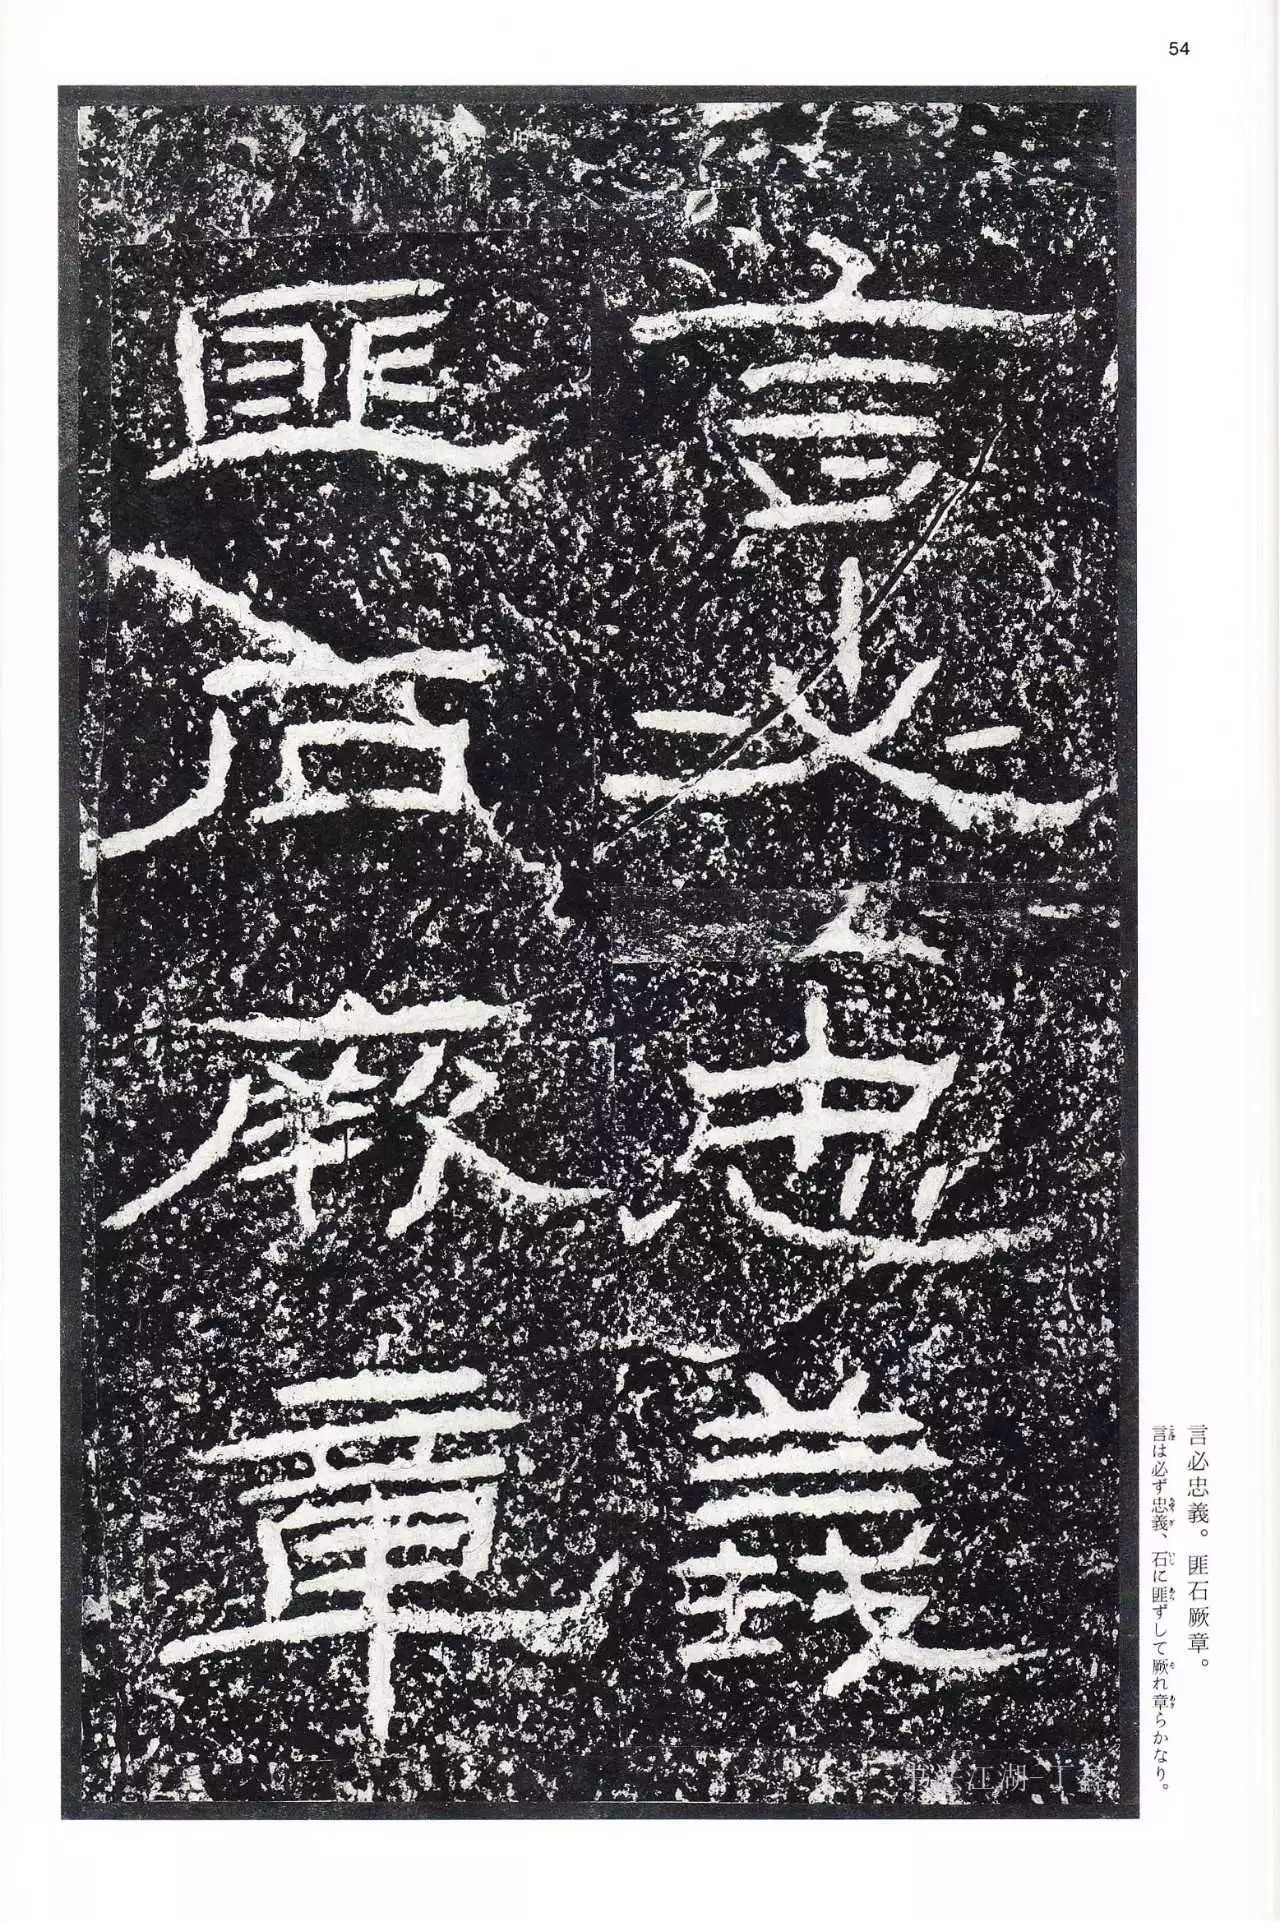 54
言必忠義
匪石厥章
言必忠義。匪石厥章。
言は必ず忠義、石に匪ずして厥れ章らかなり。
江湖-丁